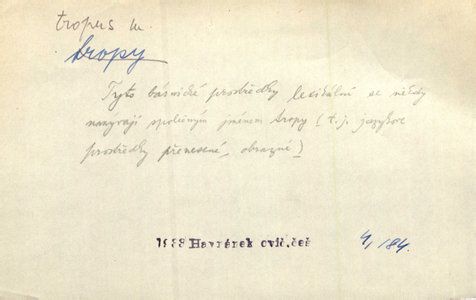 tropus m.
tropy
Tyto básnické prostředky lexikální se někdy
nazývají společným jménem tropy (t.j. jazykové
prostředky přenesené, obrazné)
1933 Havránek cvič.češ 4, 184.